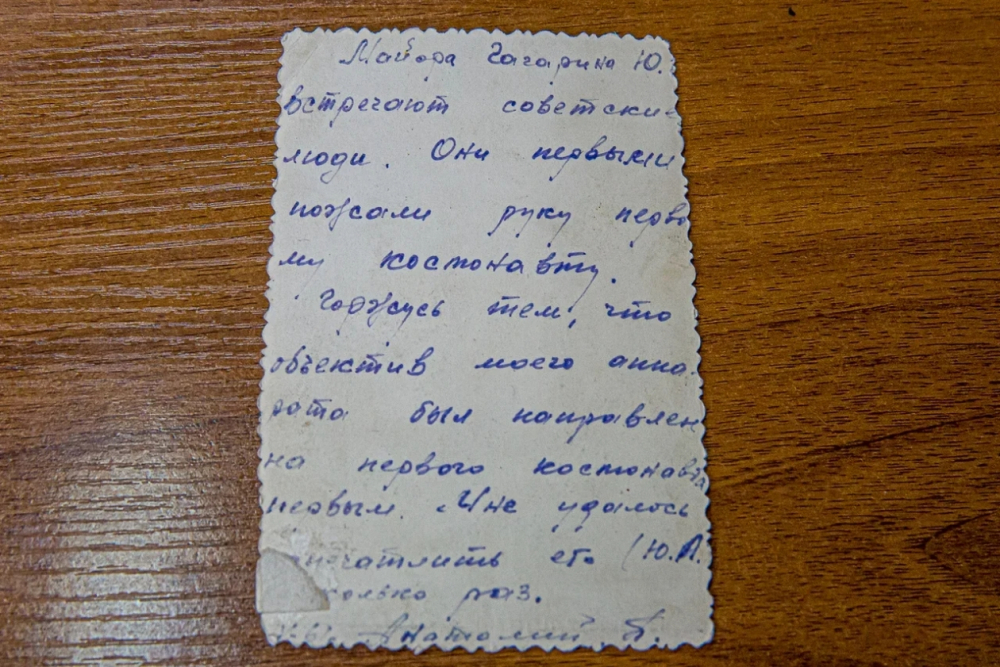 Майора Гагарина Ю.
встречают советские
люди. Они первыми
пожали руку перво
му космонавту.
Горжусь тем, что
объектив моего аппа-
рата был направлен
на первого космонавта
первым. Мне удалось
его (Ю.А.
раз.
Анатолий